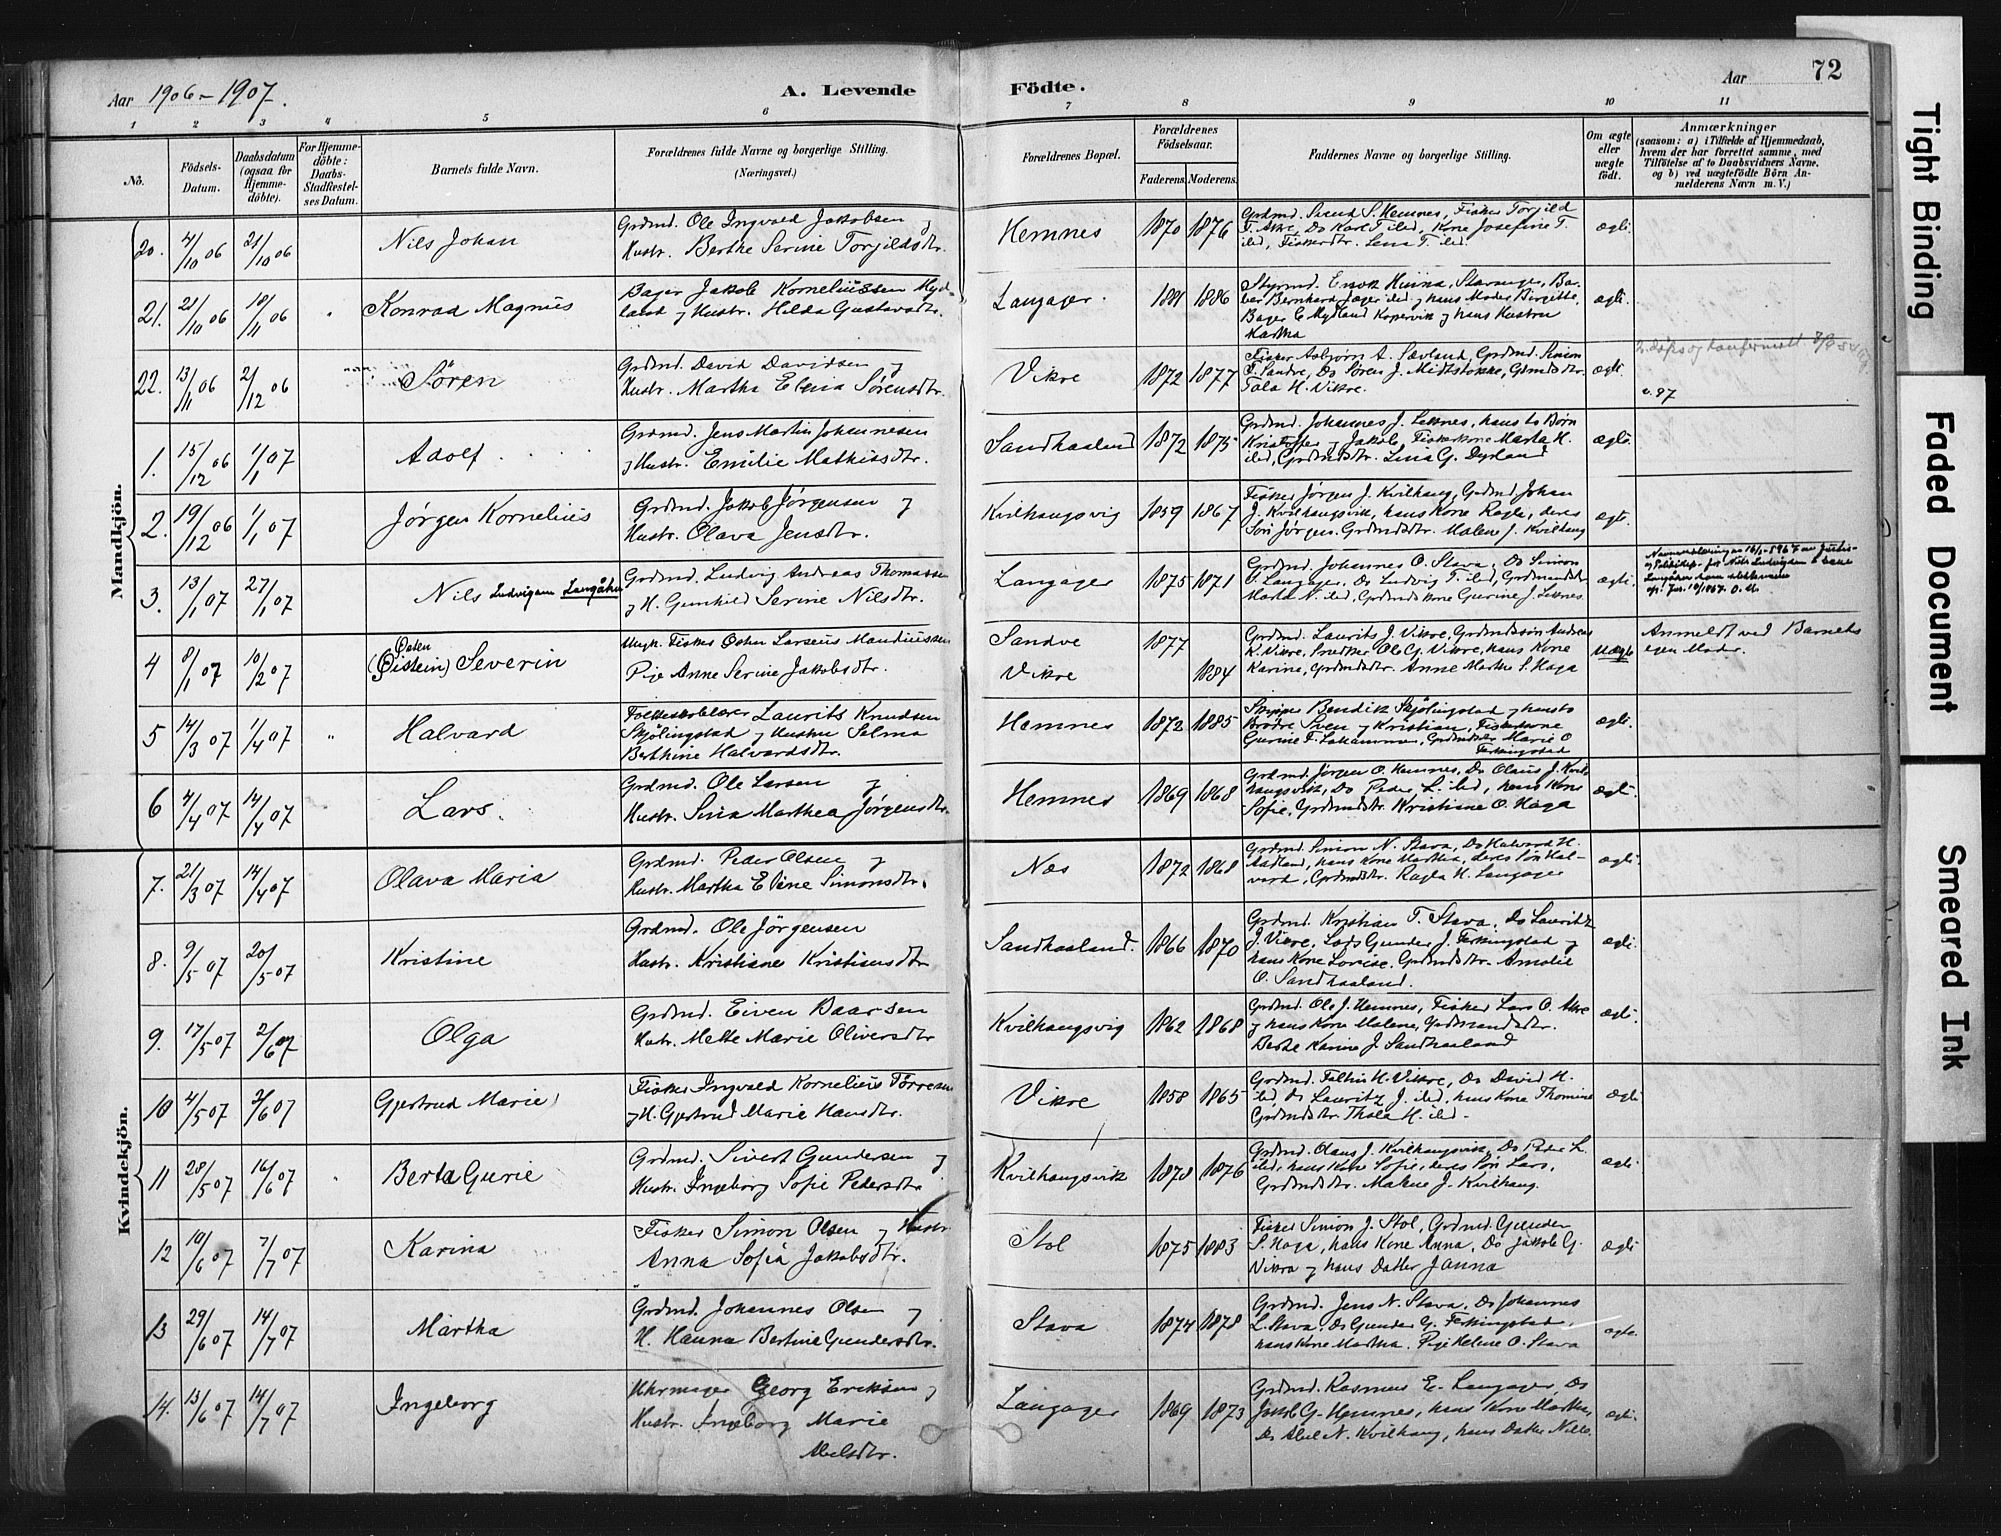 Aar 1906-1907.
A. Levende Födte.
Aar
72
1 2 3 4 5 6 7 8 9 10 11
No.
Födsels-Datum.
Daabsdatum (ogsaa for Hjemme-döbte).
For Hjemme-döbte: Daabs-Stadfæstel-ses Datum.
Barnets fulde Navn.
Forældrenes fulde Navne og borgerlige Stilling. (Næringsvei.)
Forældrenes Bopæl.
Forældrenes Födselsaar.
Faderens. Moderens.
Faddernes Navne og borgerlige Stilling.
Om ægte eller uægte födt.
Anmærkninger
(saasom: a) i Tilfælde af Hjemmedaab, hvem der har forrettet samme, med Tilföielse af to Daabsvidners Navne, og b) ved uægtefödte Börn An-melderens Navn m. V.)
Mandkjön.
20. 4/10 06 21/10 06 Nils Johan
Grdmd. Ole Ingvald Jakobsen og
Hustr. Berthe Serine Torjildsdtr.
Hemnes 1870 1876
Grdmd. Svend S. Hemnes, Fisker Torjild
T. Akre, Do Karl T. ibd, Kone Josefine T.
ibd, Fiskerdtr. Lena T. ibd.
ægte.
21. 21/10 06 18/11 06 " Konrad Magnus
Bager Jakob Korneliussen Myd-
land og Hustr. Hilda Gustavsdtr.
Langager. 1881 1886
Styrmd. Enok Hinna, Stavanger, Bar-
ber Bernhard Jæger ibd og hans Moder Birgitte,
Bager C. Mydland Kopervik og hans Hustru
Martha
ægte.
22. 13/11 06 2/12 06 Sören
Grdmd. David Davidsen og
Hustr. Martha Elena Sørensdtr.
Vikre 1872 1877
Fisker Asbjørn A. Sævland, Grdmd. Simon
T. Sandve, Do Søren J. Midtstokke, Grmdsdtr.
Tala H. Vikre.
ægte.
1. 15/12 06 1/1 07 Adolf
Grdmd. Jens Martin Johannesen
og Hustr. Emilie Mathisdtr.
Sandhaaland 1872 1875
Grdmd. Johannes J. Liknes, hans to Børn
Kristoffer og Jakob, Fiskerkone Marta H.
ibd, Grdmdsdtr. Lina G. Dyrland
ægte.
2. 19/12 06 1/1 07 Jørgen Kornelius
Grdmd. Jakob Jørgensen og
Hustr. Olava Jensdtr.
Kvilhaugsvig 1859 1867
Fisker Jørgen J. Kvilhaug, Grdmd Johan
J. Kvilhaugsvik, hans Kone Ragla, deres
Søn Jørgen. Grdmdsdtr. Malene J. Kvilhaug
ægte.
3. 13/1 07 27/1 07 Nils Ludvigsen Langåker
Grdmd. Ludvig Andreas Thomassen
og H. Gunhild Serine Nilsdtr.
Langager 1875 1871
Grdmd. Johannes O. Stava, Do Simon
O. Langager, Do Ludvig T. ibd, Grdmandsdtr
Marta N. ibd, Grdmdskone Gurine J. Liknes
ægte.
4 8/1 07 10/2 07 Østen (Øistein) Severin
Ungk. Fisker Osten Larsens Mandiussen
Pige Anne Serine Jakobsdtr.
Sandve 1877
Vikre 1884
Grdmd. Laurits J. Vikre, Grdmdssøn Andreas
K. Vikre, Snedker Ole G. Vikre, hans Kone
Karina, Grdmdsdtr. Anne Martha S. Haga
Uægte
Anmeldt ved Barnets
egen Moder.
5 14/3 07 1/4 07 " Halvard
Folkeskolelærer Laurits Knudsen
Skjölingstad og Hustru Selma
Berthine Halvardsdtr.
Hemnes 1872 1885
Skipper Bendik Skjölingstad og hans to
Brødre Sven og Kristian, Fiskerkone
Gurine F. Lahammer, Grdmdsdtr Marie O
Ferkingstad
ægte.
6 4/4 07 14/4 07 Lars.
Grdmd. Ole Larsen og
Hustr. Sina Marthea Jørgensdtr.
Hemnes 1869 1868
Grdmd. Jørgen O. Hemnes, Do Olaus J. Kvil-
haugsvik, Do Peder L. ibd, hans Kone
Sofie, Grdmdsdtr. Kristiane O. Haga
ægte.
Kvindekjön.
7. 21/3 07 14/4 07 Olava Maria
Grdmd. Peder Olsen og
Hustr. Martha Eline Simonsdtr.
Næs 1872 1868
Grdmd. Simon N. Stava, Do Halvard H.
Aadland, hans Kone Martha, deres Søn Hal-
vard, Grdmdsdtr. Ragla H. Langager
ægte.
8. 9/5 07 20/5 07 Kristine
Grdmd. Ole Jørgensen
Hustr. Kristiane Kristensdtr
Sandhaaland. 1866 1870
Grdmd. Kristian T. Stava, Do Lauritz
J. Vikre, Lods Gunder J. Ferkingstad og
hans Kone Lovise. Grdmdsdtr. Amalie
O. Sandhaaland.
ægte.
9. 17/5 07 2/6 07 Olga
Grdmd. Eiven Baarsen
Hustr. Mette Marie Oliversdtr
Kvilhaugsvig 1862 1868
Grdmd. Ole J. Hemnes, Fisker Lars O. Akre
og hans Kone Malene, Grdmandsdtr.
Berte Karine J. Sandhaaland
ægte.
10 4/5 07 2/6 07 Gjertrud Marie
Fisker Ingvald Kornelius Tørresen
og H. Gjertrud Marie Hansdtr.
Vikre 1858 1865
Grdmd. Falkin H. Vikre, Do David H.
ibd, Do Lauritz J. ibd, hans Kone Thomine
Grdmdsdtr Thala H. ibd.
ægte
11 28/5 07 16/6 07 " Berta Gurie
Grdmd. Sivert Gundersen og
Hustr. Ingeborg Sofie Pedersdtr
Kvilhaugsvik 1878 1876
Grdmd. Olaus J. Kvilhaugsvik, Do Peder L.
ibd, hans Kone Sofie, deres Søn Lars,
Grdmdsdtr. Malene J. Kvilhaug.
ægte.
12 10/6 07 7/7 07 Karina
Fisker Simon Olsen og Hustr
Anna Sofia Jakobsdtr.
Stol 1875 1883
Fisker Simon J. Stol, Grdmd. Gunder
S. Haga, hans Kone Anna, Do Jakob G.
Vikra og hans Datter Janna
ægte
13 29/6 07 14/7 07 Martha
Grdmd. Johannes Olsen og
H. Hanna Bertine Gundersdtr.
Stava 1874 1878
Grdmd. Jens N. Stava, Do Johannes
L. Stava, Do Gunder G. Ferkingstad,
hans Kone Martha. Pige Helene O. Stava
ægte.
14. 13/6 07 14/7 07 Ingeborg
Uhrmager Georg Eriksen og
Hustr. Ingeborg Marie
Abelsdtr.
Langager 1869 1873
Grdmd. Rasmus E. Langager, Do
Jakob G. Hemnes, hans Kone Martha,
Do Abel N. Kvilhaug, hans Datter Nille.
ægte.
Tight Binding
Faded Document
Smeared Ink